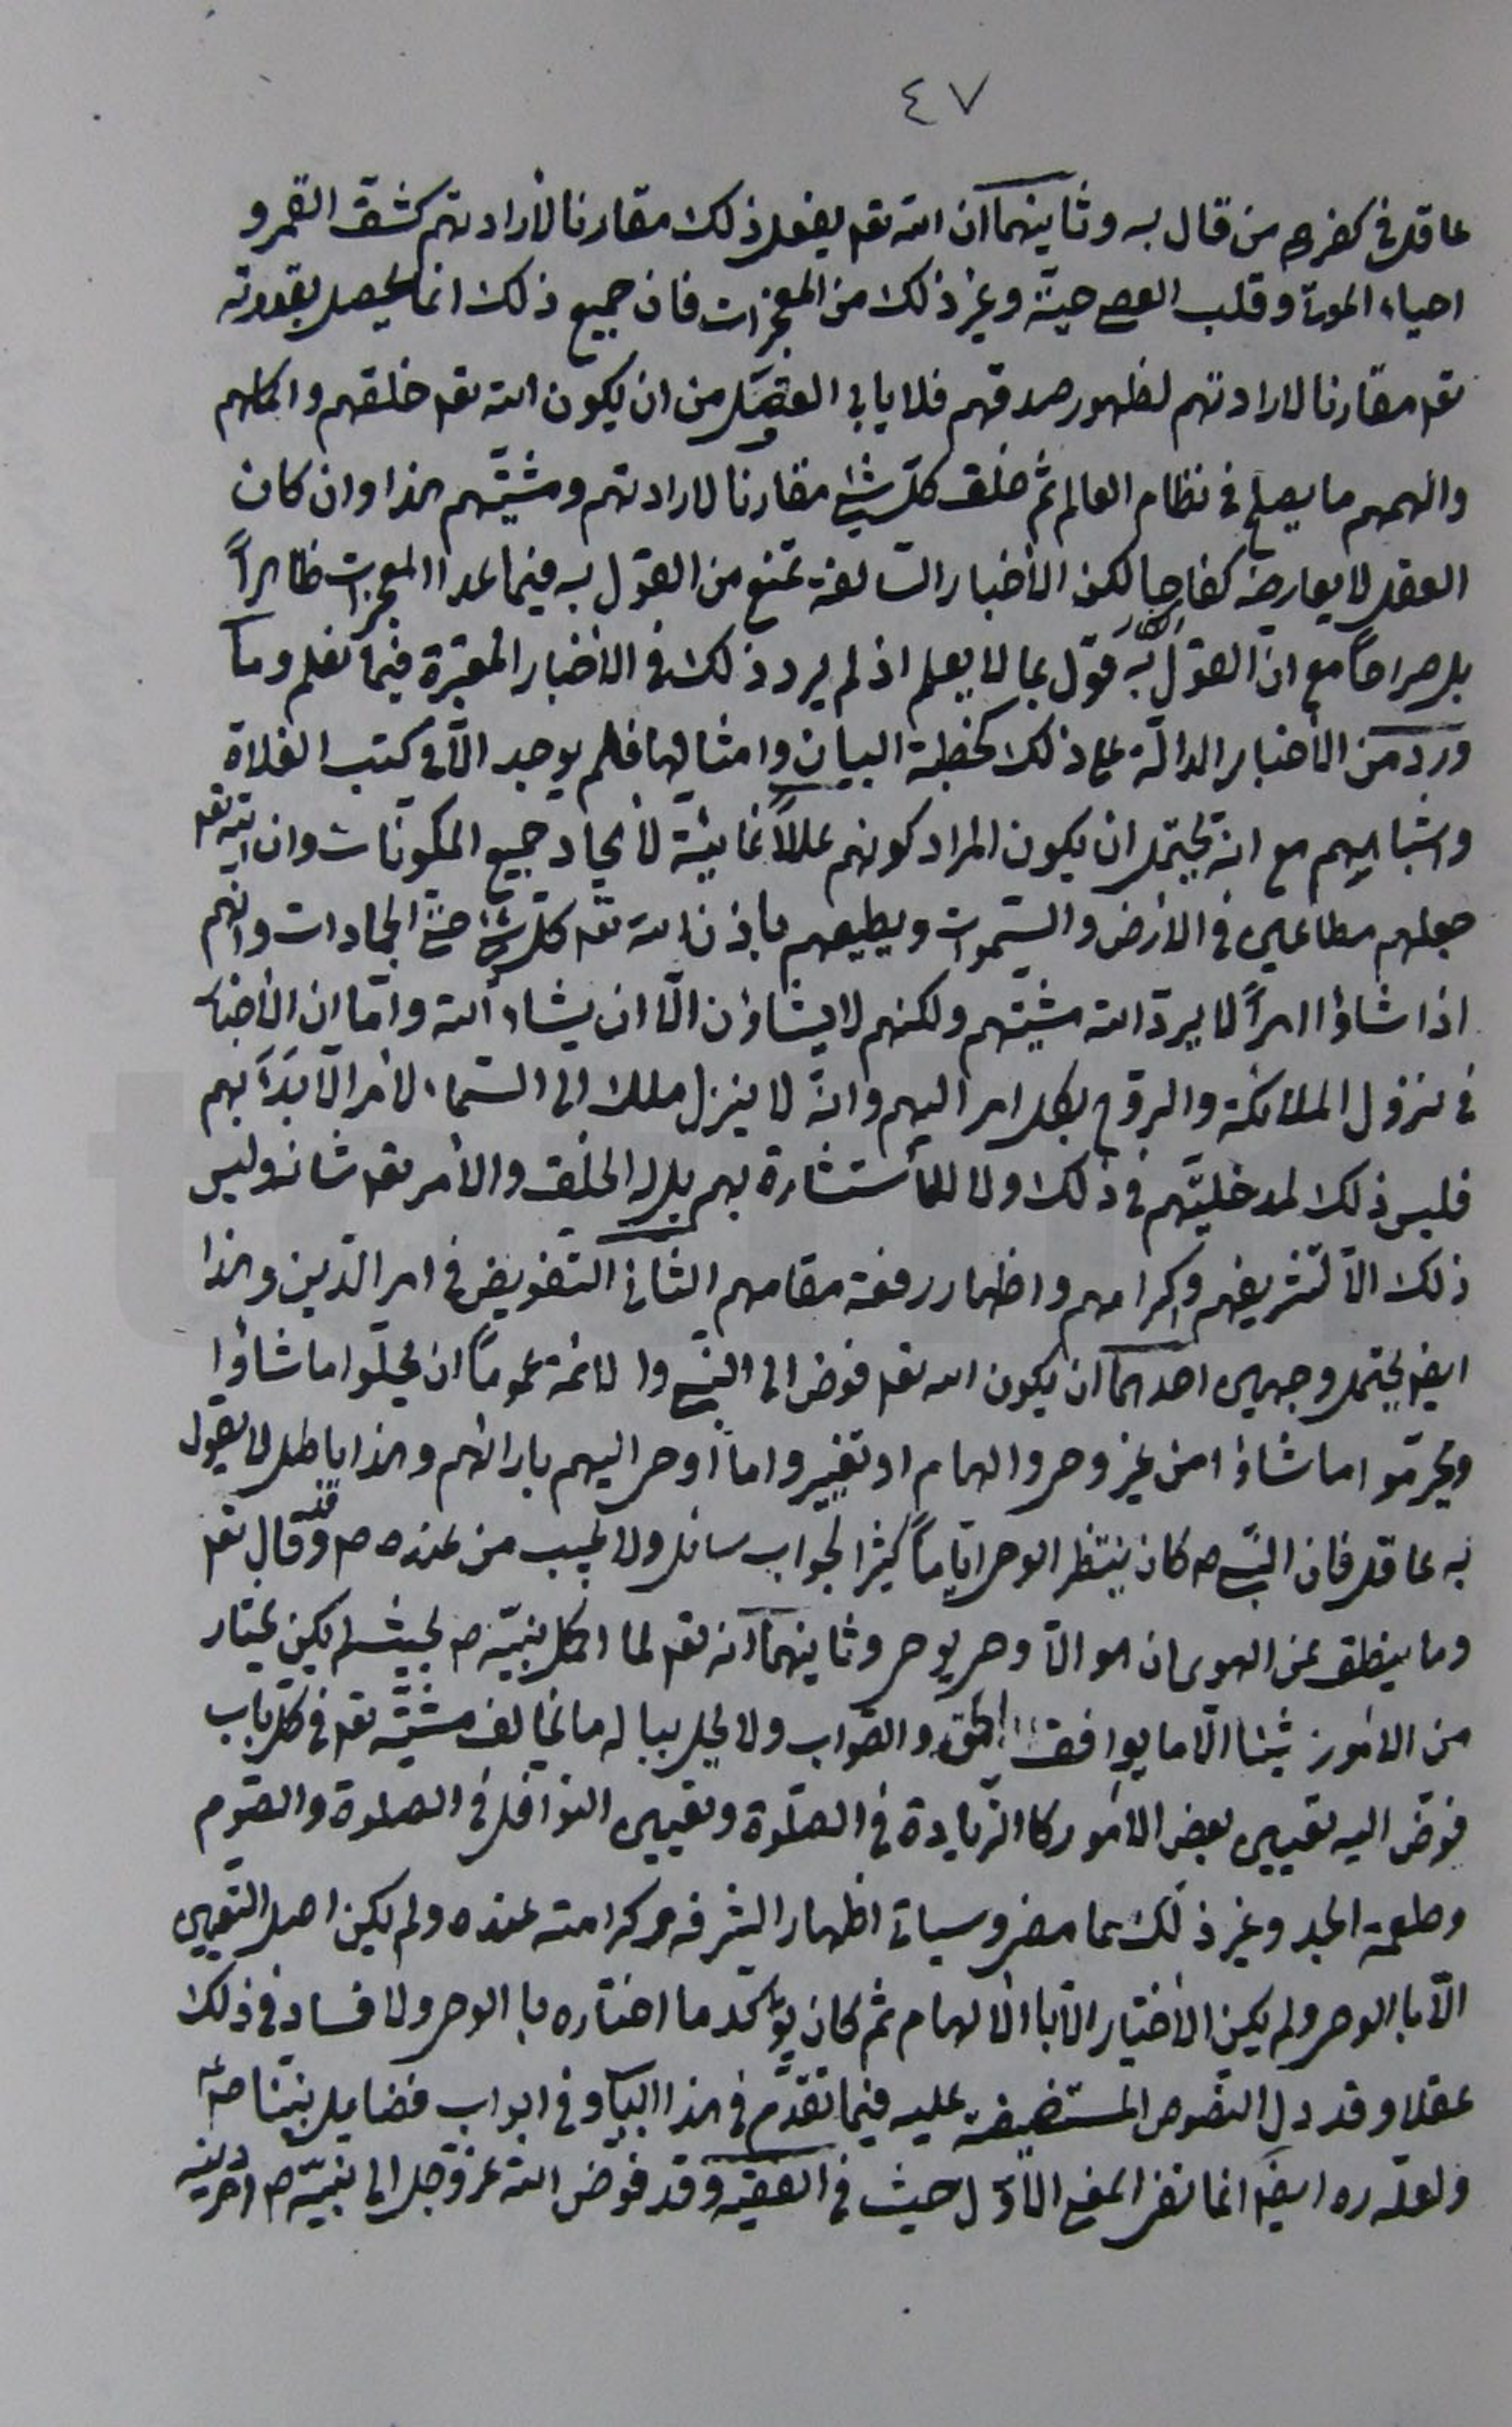 ٤٧
عاقل في كفر من قال به وثانيهما ان الله تعه يفعل ذلك مقارنا لأرادتهم كشق القمر و
احياء الموتى وقلب العصى حية وغير ذلك من المعجزات فان جميع ذلك انما يحصل بقدرته
تعه مقارنا لارادتهم لظهور صدقهم فلا يابى العقل من ان يكون الله تعه خلقهم واكملهم
والهمهم ما يصلح في نظام العالم ثم خلق كل شئ مقارنا لارادتهم ومشيتهم هذا وان كان
العقل لا يعارضه كفاحا لكن الأخبار السالفة تمنع من القول به فيما عدا المعجزات ظاهراً
بل صراحاً مع ان القول به قول بما لا يعلم اذ لم يرد ذلك في الأخبار المعتبرة فيما نعلم وما
ورد من الأخبار الدالة على ذلك كخطبة البيان وامثالها فلم يوجد الّا في كتب الغلاة
واشباههم مع انه يحتمل ان يكون المراد كونهم عللاً غائية لأيجاد جميع المكونات وان الله تعه
جعلهم مطاعين في الأرض والسموات ويطيعهم باذن الله تعه كل شئ حتى الجمادات وانهم
اذا شاؤا امراً لا يرد الله مشيتهم ولكنهم لا يشاؤن الّا ان يشاء الله واما ان الأخبار
في نزول الملائكة والروح بكل امر اليهم وانه لا ينزل ملك الى السماء لأمر الّا بدأ بهم
فليس ذلك لمدخليتهم في ذلك ولا للأستشارة بهم بل له الخلق والأمر تعه شانه وليس
ذلك الّا لتشريفهم واكرامهم واظهار رفعة مقامهم الثاني التفويض في امر الدين وهذا
ايضه يحتمل وجهين احدهما ان يكون الله تعه فوض الى النبي والائمة عموماً ان يحلّوا ما شاؤا
ويحرّموا ما شاؤا من غير وحى والهام او تغيير ما اوحى اليهم بارائهم وهذا باطل لا يقول
به عاقل فان النبي ص كان ينتظر الوحى اياماً كثيرا لجواب سائل ولا يجيب من عنده ص وقد قال تعه
وما ينطق عن الهوى ان هو الّا وحى يوحى وثانيهما انه تعه لما اكمل نبيه ص بحيث لم يكن يختار
من الامور شيئا الّا ما يوافق الحق والصواب ولا يحل بباله ما يخالف مشيته تعه في كل باب
فوض اليه تعيين بعض الأمور كالزيادة في الصلوة وتعيين النوافل في الصلوة والصوم
وطعمة الجد وغير ذلك مما مضى وسياتى اظهارا لشرفه وكرامته عنده ولم يكن اصل التعيين
الّا بالوحى ولم يكن الأختيار الّا بالألهام ثم كان يؤكد ما اختاره بالوحى ولا فساد في ذلك
عقلا وقد دل النصوص المستفيضة عليه فيما تقدّم في هذا الباب وفي ابواب فضايل نبينا ص
ولعله ره ايضه انما نفى المعنى الأوّل حيث في الفقيه وقد فوض الله عز وجل الى نبيه ص امر دينه